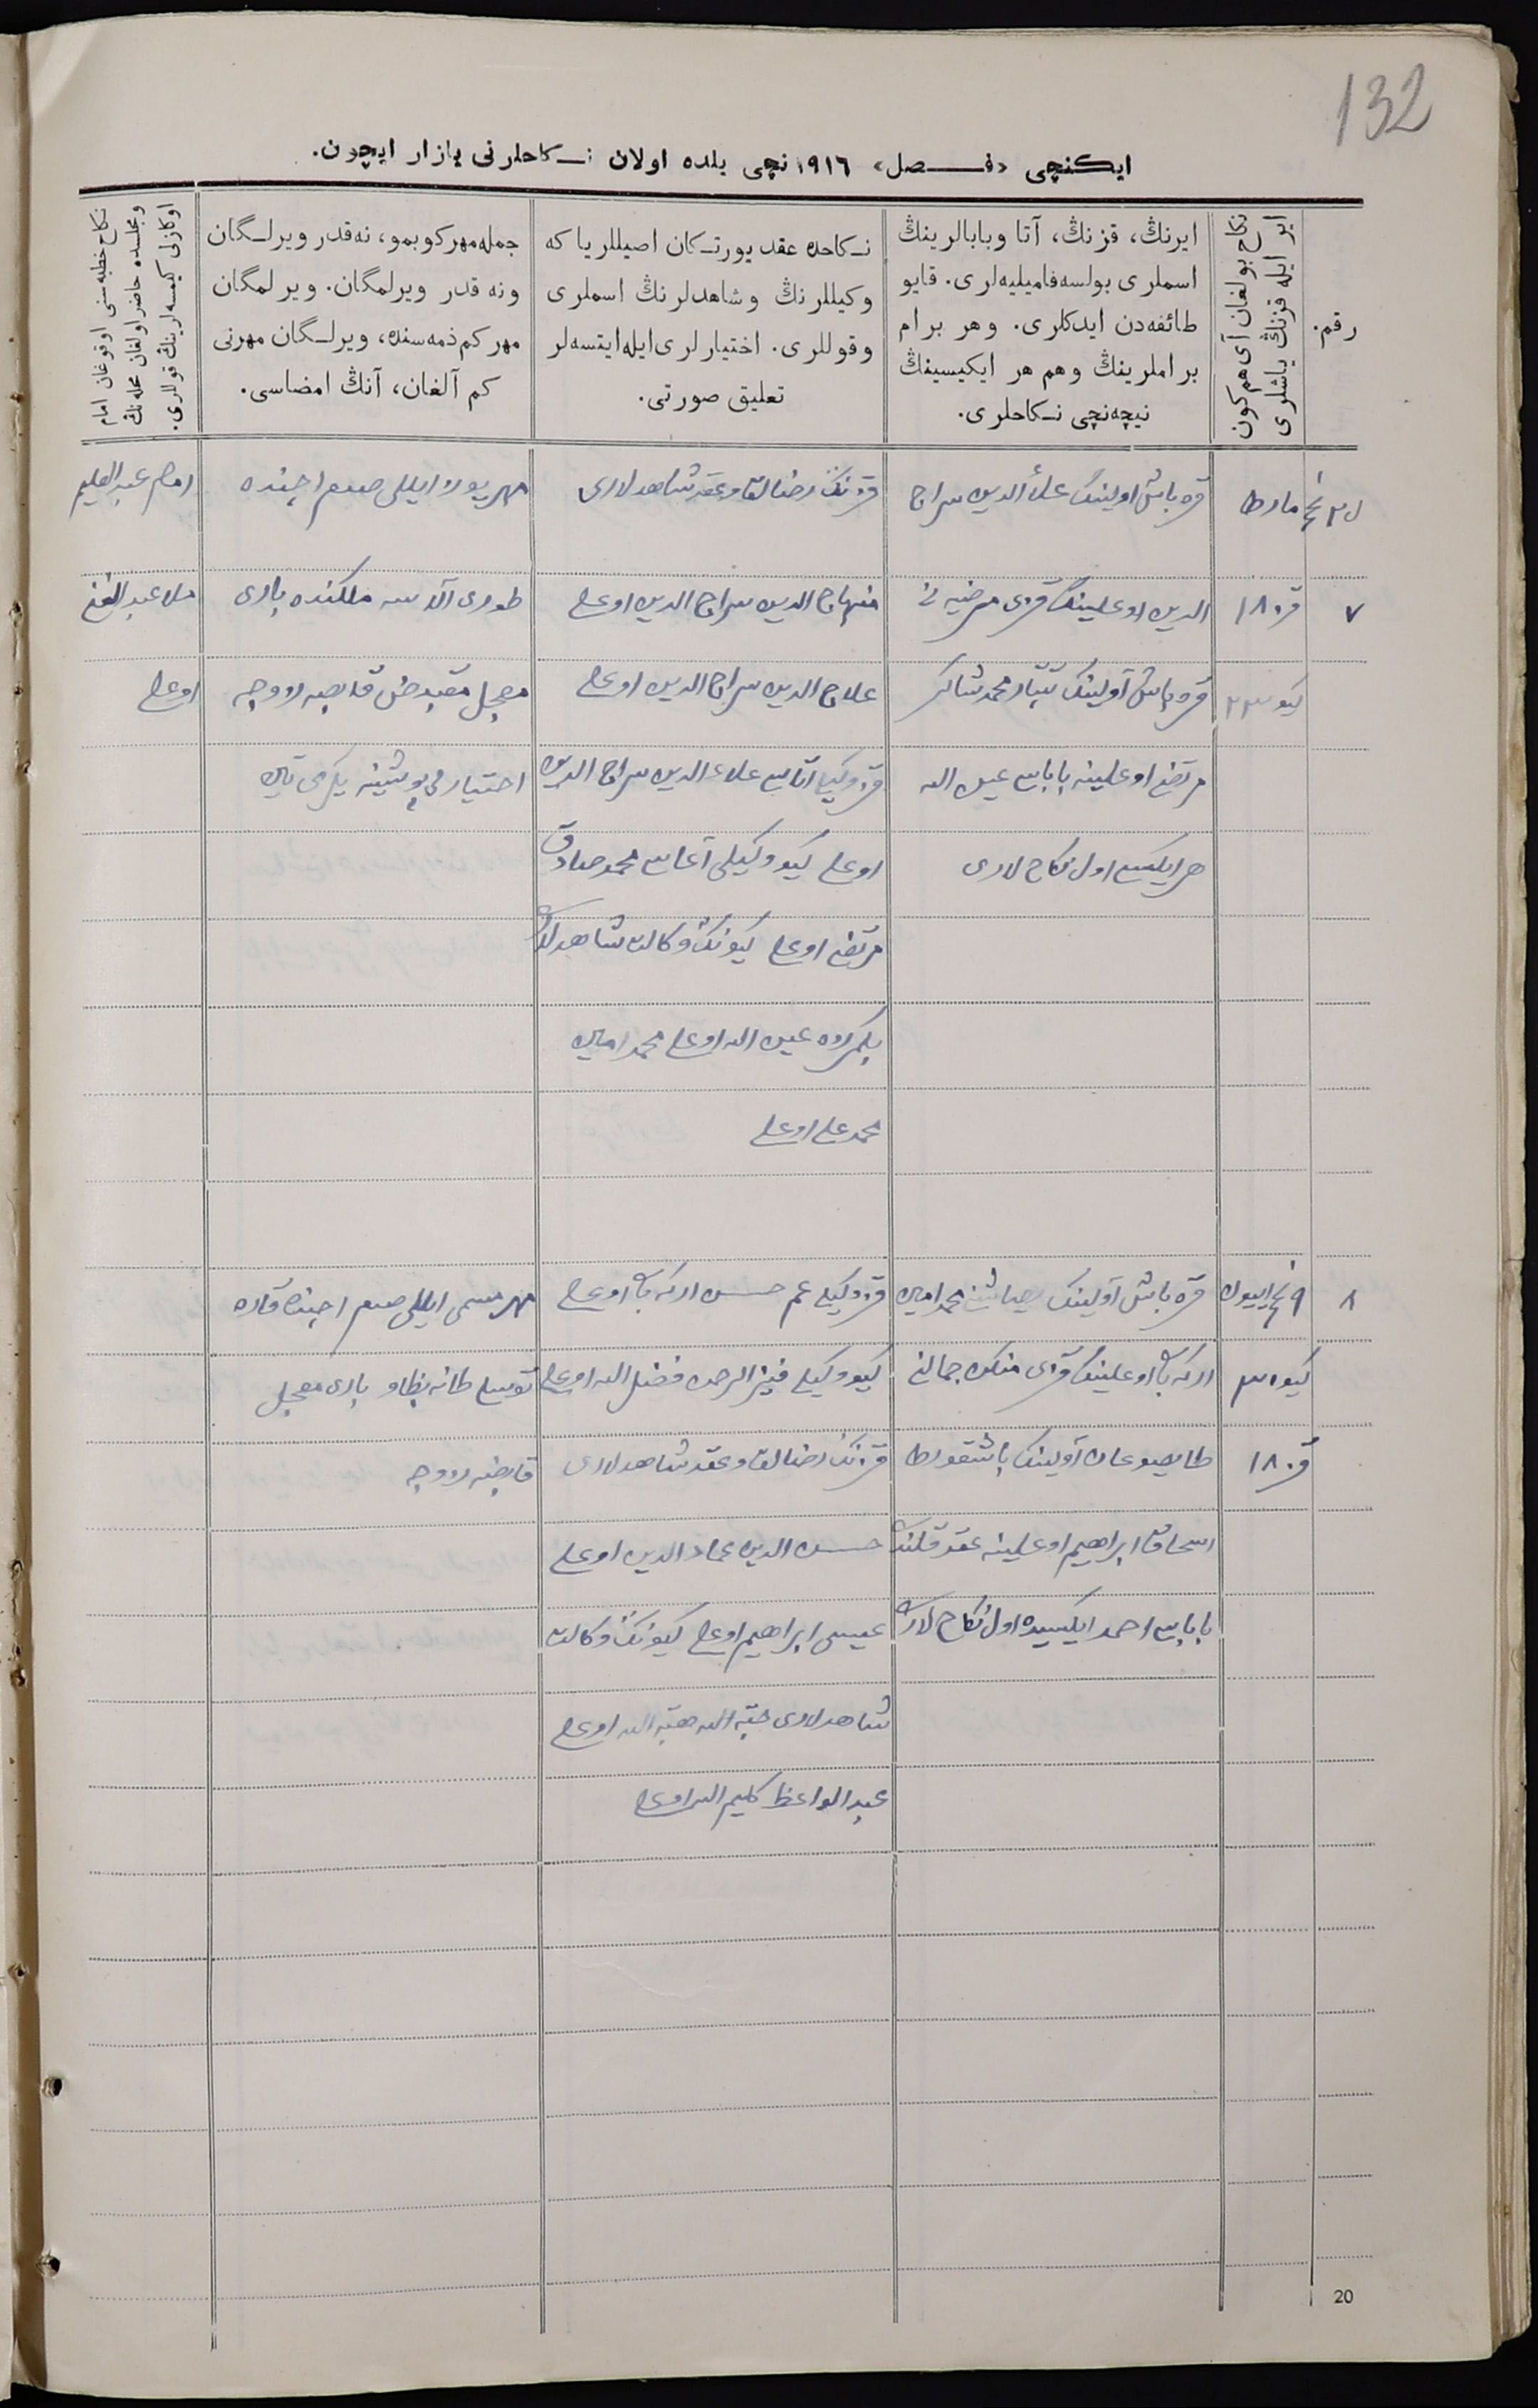 132
ایكنچی «فـصل» ١٩١٦ نچی یلده اولان نـكاحلرنی یازار ایچون.
رقم.
نكاح بولغان آی هم كون
ایر ایله قزنڭ یاشلری
ایرنڭ، قزنڭ، آتا وبابالرینڭ
اسملری بولسه فامیلیه‌لری. قایو
طائفه‌دن ایدكلری. وهر برام
براملرینڭ وهم هر ایكیسینڭ
نیچه‌نچی نـكاحلری.
نـكاحده عقد یورتـكان اصیللر یا كه
وكیللرنڭ وشاهدلرنڭ اسملری
وقوللری. اختیارلری ایله ایتسه‌لر
تعلیق صورتی.
جمله مهر كوبمو، نه‌قدر ویرلـگان
ونه قدر ویرلمگان. ویرلمگان
مهر كم ذمه‌سنده، ویرلـگان مهرنی
كم آلغان، آنڭ امضاسی.
نكاح خطبه‌سنی اوقوغان امام
ومجلسده حاضر اولغان محله‌نڭ
اوكازنی كیمسه‌لرینڭ قوللری.
مارط
قره باش اولینڭ علأالدین سراج
قزنڭ رضالق وعقد شاهدلاری
مهر یوز ایللی صوم اچنده
امام عبدالعلیم
٧
قز ١٨
الدین اوغلینڭ قزی مرضیه نی
منهاج الدین سراج الدین اوغلی
ملكنده باری
ملا عبدالغنی
كیو ٢٣
قره باش آولینڭ تیتار محمدشاكر
علاج الدین سراج الدین اوغلی
معجل مقبوض قابضه زوجه
اوغلی
مرتضی اوغلینه باباسی عین الله
قز وكیلی آتاسی علاءالدین سراج الدین
هر ایكیسی اول نكاح لاری
اوغلی كیو وكیلی آغاسی محمدصادق
مرتضی اوغلی كیونڭ وكالت شاهدلاری
عین الله اوغلی محمدامین
محمدعلی اوغلی
٨
٩ نچی اییول
قره باش آولینڭ محمدامین
قز وكیلی عم حسن اوغلی
مهر مسمی ایللی صوم اچنده
كیو
اوغلینڭ قزی
كیو وكیلی فیض الرحمن فضل الله اوغلی
باری معجل
قز ١٨
آولینڭ باشقورط
قزنڭ رضالق وعقد شاهدلاری
قابضه زوجه
اسحاق ابراهیم اوغلینه عقد قلندی
حسن الدین عماد الدین اوغلی
باباسی احمد ایكیسیده اول نكاح لاری
عیسی ابراهیم اوغلی كیونڭ وكالت
شاهدلاری هبة الله اوغلی
عبدالواعظ كلیم الله اوغلی
20